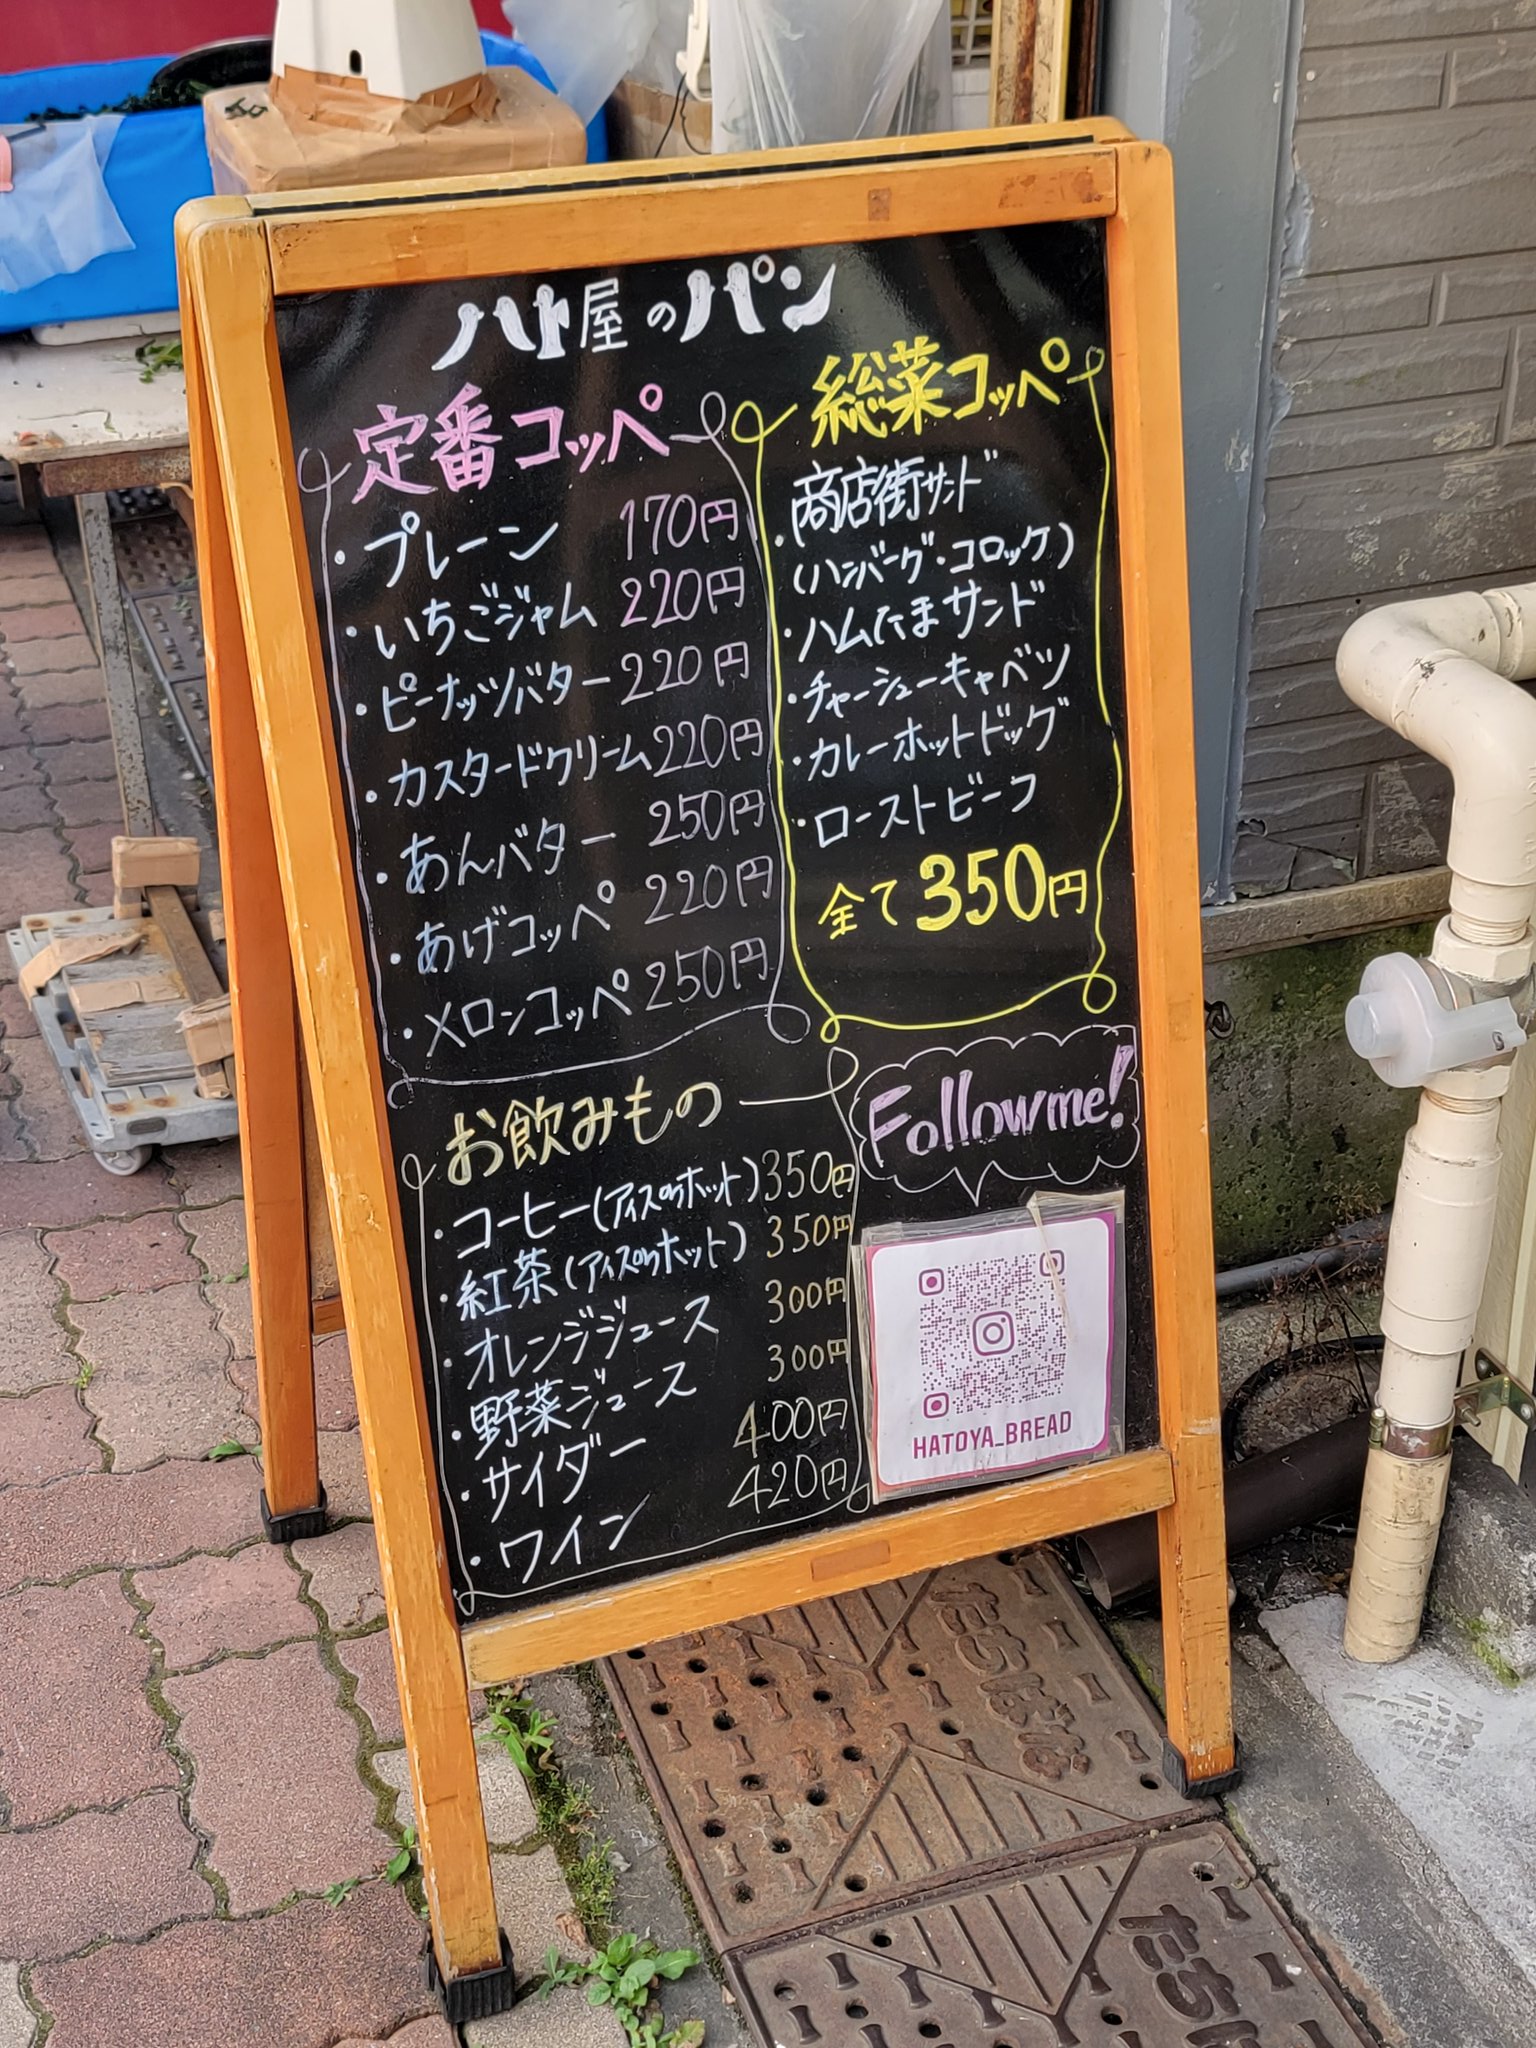 ハト屋のパン
定番コッペ
・プレーン 170円
・いちごジャム 220円
・ピーナッツバター 220円
・カスタードクリーム 220円
・あんバター 250円
・あげコッペ 220円
・メロンコッペ 250円
総菜コッペ
・商店街サンド
(ハンバーグ・コロッケ)
・ハムたまサンド
・チャーシューキャベツ
・カレーホットドッグ
・ローストビーフ
全て350円
お飲みもの
・コーヒー(アイスorホット) 350円
・紅茶(アイスorホット) 350円
・オレンジジュース 300円
・野菜ジュース 300円
・サイダー 400円
・ワイン 420円
Follow me!
HATOYA_BREAD
たちばな
たちば